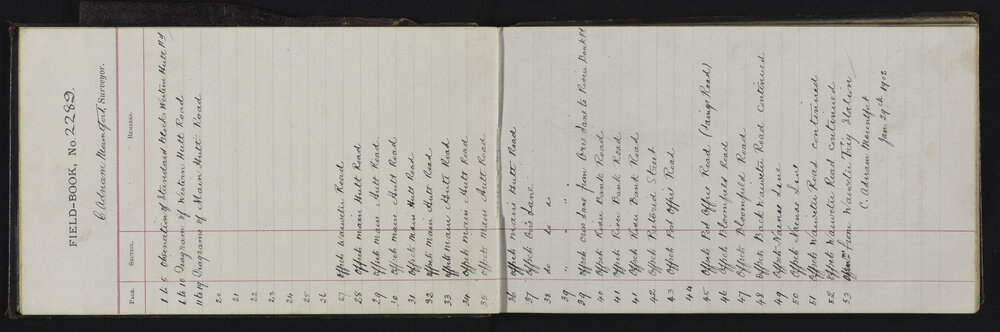 FIELD-BOOK, No. 2282.
C Adnam Mountfort, Surveyor.
PAGE. SECTION. REMARKS.
1 to 5 Observation of Standard Blocks Western Hutt Rd
6 to 10 Diagram of Western Hutt Road
11 to 19 Diagrams of Main Hutt Road
20
21
22
23
24
25
26
27 Offsets Waiwetu Road
28 Offsets Main Hutt Road
29 Offsets Main Hutt Road
30 Offsets Main Hutt Road
31 Offsets Main Hutt Road
32 Offsets Main Hutt Road
33 Offsets Main Hutt Road
34 Offsets Main Hutt Road
35 Offsets Main Hutt Road
36 Offsets Main Hutt Road
37 Offsets Lane
38 do do do
39 " " "
39 Offsets Lane from Lane to River Bank Rd
40 Offsets River Bank Road
41 Offsets River Bank Road
41 Offsets River Bank Road
42 Offsets Street
43 Offsets Post Office Road
44
45 Offsets Post Office Road
46 Offsets Bloomfield Road
47 Offsets Bloomfield Road
48 Offsets Back Waiwetu Road Continued
49 Offsets Lane
50 Offsets Lane
51 Offsets Waiwetu Road continued
52 Offsets Waiwetu Road Continued
53 from Waiwetu Trig Station
C. Adnam Mountfort
Jan 29th 1902